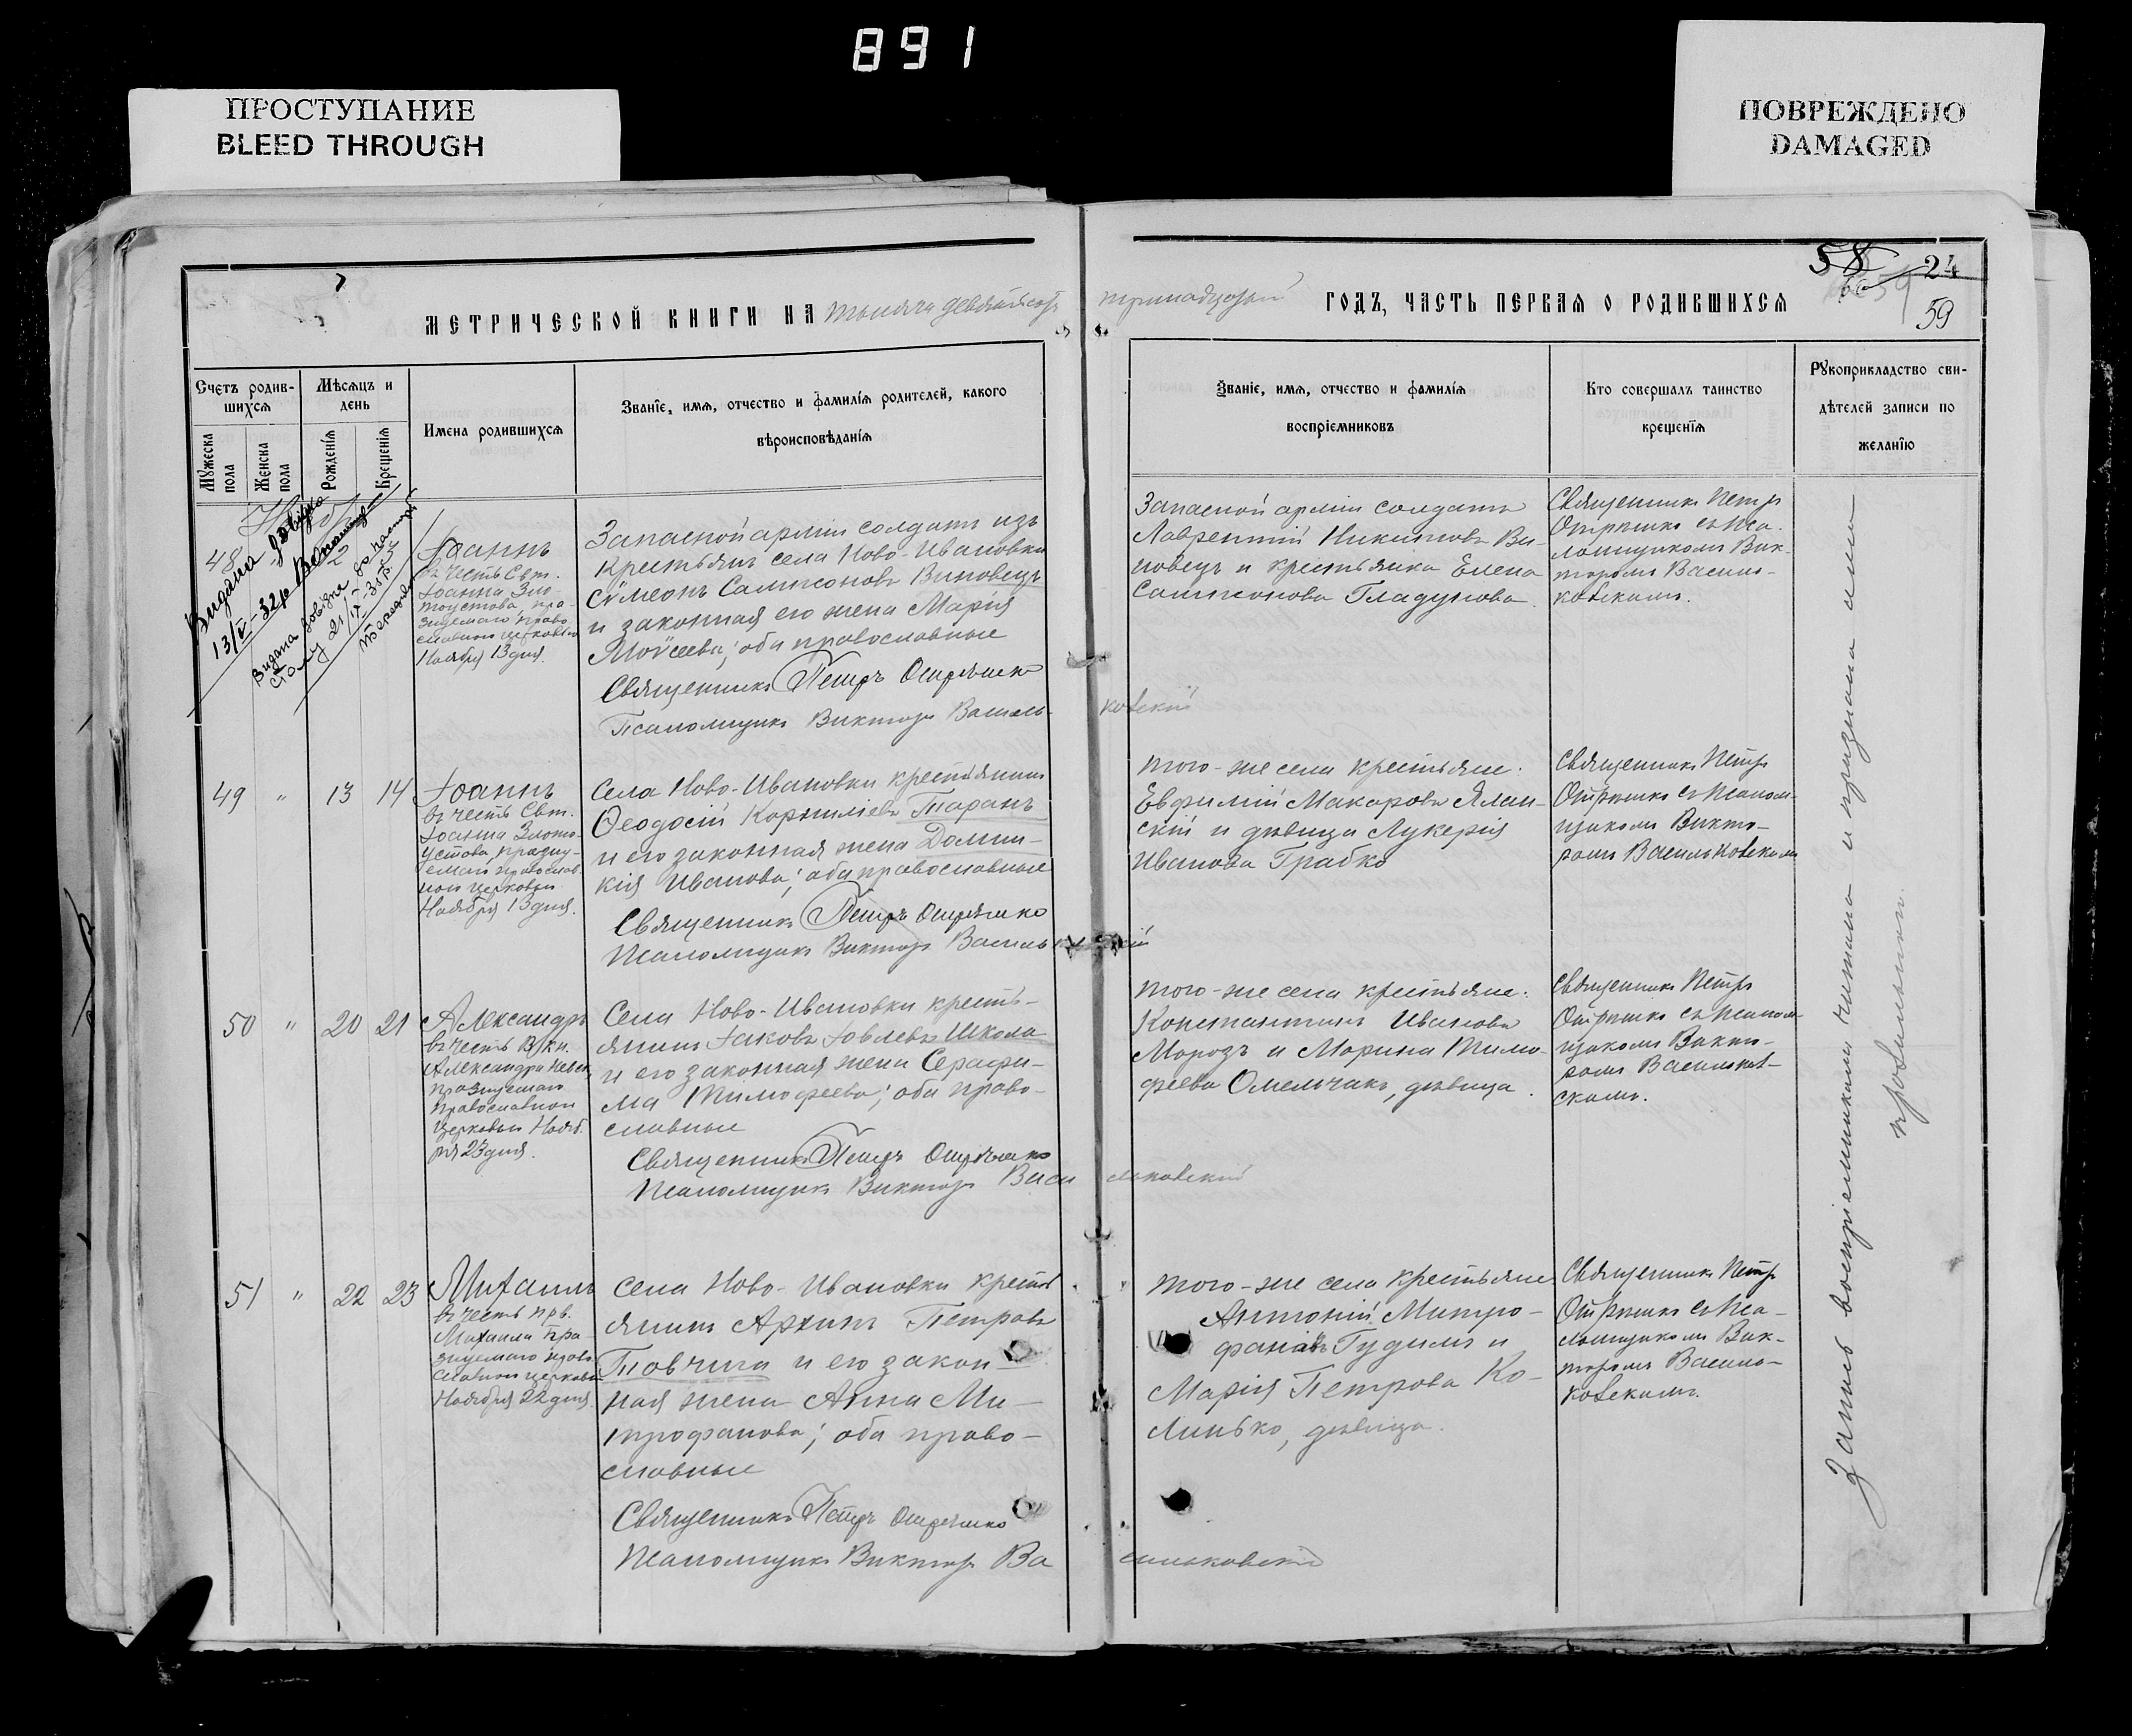 891
ПРОСТУПАНИЕ
BLEED THROUGH
ПОВРЕЖДЕНО
DAMAGED
58
24
59
МЕТРИЧЕСКОЙ КНИГИ НА тысяча девятьсот
тринадцатый ГОДЪ, ЧАСТЬ ПЕРВАЯ О РОДИВШИХСЯ
Счетъ родив-
шихся
Мужеска
пола
Женска
пола
Мѣсяцъ и
день
Рожденія
Крещенія
Имена родившихся
Званіе, имя, отчество и фамилія родителей, какого
вѣроисповѣданія
Званіе, имя, отчество и фамилія
воспріемниковъ
Кто совершалъ таинство
крещенія
Рукоприкладство сви-
дѣтелей записи по
желанію
48
Видана довідка
13/V-32р
Видана довідка
21/IX-35р
Іоаннъ
въ честь Свт.
Іоанна Зла-
тоустова, пра-
зднуемаго право
славной церковью
Ноября 13 дня.
Запасной арміи солдатъ изъ
крестьянъ села Ново-Ивановки
Сѵмеонъ Сампсоновъ Виновецъ
и законная его жена Марія
Моѵсеева; оба православные
Священникъ Петръ Отрѣшко
Псаломщикъ Викторъ Василь-
ковскій
Запасной арміи солдатъ
Лаврентій Никитовъ Ви-
новецъ и крестьянка Елена
Сампсонова Гладунова.
Священникъ Петръ
Отрѣшко съ Пса-
ломщикомъ Вик-
торомъ Василь-
ковскимъ.
49 " 13 14
Іоаннъ
въ честь Свт.
Іоанна Злато-
устова, праздну-
емаго православ
ной церковью
Ноября 13 дня.
Села Ново-Ивановки крестьянинъ
Ѳеодосій Корниліевъ Таранъ
и его законная жена Домни-
кія Иванова; оба православные
Священникъ Петръ Отрѣшко
Псаломщикъ Викторъ Васильковскій
того-же села крестьяне:
Евфимій Макаровъ Ялан-
скій и дѣвица Лукерія
Иванова Грабко
Священникъ Петръ
Отрѣшко съ Псалом-
щикомъ Викто-
ромъ Васильковскимъ
50 " 20 21
Александръ
въ честь В. кн.
Александра Невск.
празднуемаго
православной
церковью Нояб-
ря 23 дня.
Села Ново-Ивановки кресть-
янинъ Іаковъ Іовлевъ Школа
и его законная жена Серафи-
ма Тимофеева; оба право-
славные
Священникъ Петръ Отрѣшко
Псаломщикъ Викторъ Васи
льковскій
того-же села крестьяне:
Константинъ Ивановъ
Морозъ и Марина Тимо-
феева Омельчакъ, дѣвица.
Священникъ Петръ
Отрѣшко съ Псалом-
щикомъ Викто-
ромъ Васильков-
скимъ.
51 " 22 23
Михаилъ
въ честь прв.
Михаила пра-
зднуемаго право
славной церковью
Ноября 22 дня.
села Ново-Ивановки кресть
янинъ Архипъ Петровъ
Товчига и его закон-
ная жена Анна Ми-
трофанова; оба право-
славные
Священникъ Петръ Отрѣшко
Псаломщикъ Викторъ Ва
сильковскій
того-же села крестьяне
Антоній Митро-
фановъ Гудимъ и
Марія Петрова Ко-
линько, дѣвица.
Священникъ Петръ
Отрѣшко съ Пса-
ломщикомъ Вик-
торомъ Василь-
ковскимъ.
Запись воспріемниками читана и признана ими
правильною.